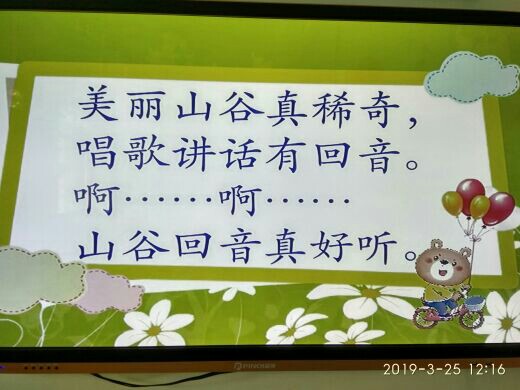 美丽山谷真稀奇，
唱歌讲话有回音。
啊……啊……
山谷回音真好听。
PINDI
2019-3-25 12:16